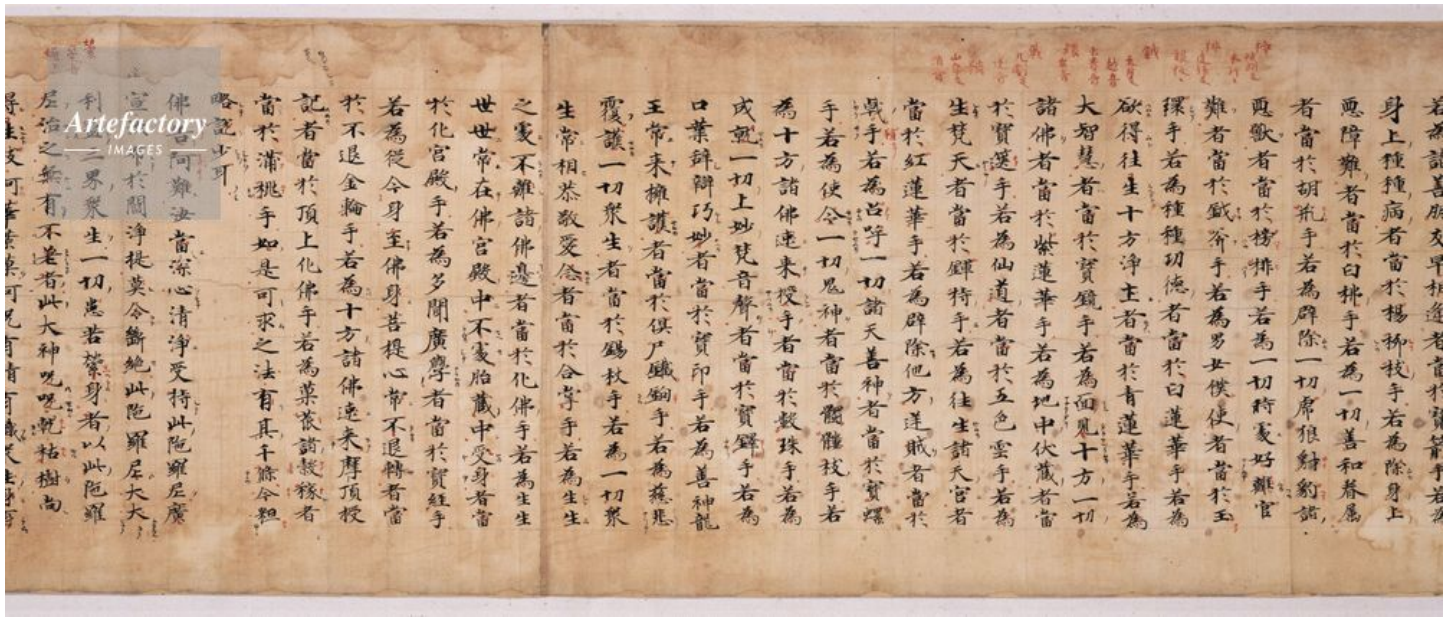 身上種種病者當於楊柳枝手若為除身上
惡障難者當於白拂手若為一切善和眷属
者當於胡瓶手若為辟除一切虎狼豺豹諸
惡獸者當於榜排手若為一切時處好離官
難者當於鉞斧手若為男女僕使者當於玉
環手若為種種功德者當於白蓮華手若為
欲得往生十方淨土者當於青蓮華手若為
大智慧者當於寶鏡手若為面見十方一切
諸佛者當於紫蓮華手若為地中伏藏者當
於寶篋手若為仙道者當於五色雲手若為
生梵天者當於鍕持手若為往生諸天宮者
當於紅蓮華手若為辟除他方逆賊者當於
戟手若為召呼一切諸天善神者當於寶螺
手若為使令一切鬼神者當於髑髏杖手若
為十方諸佛速来授手者當於數珠手若為
成就一切上妙梵音聲者當於寶鐸手若為
口業辭辯巧妙者當於寶印手若為善神龍
王常来擁護者當於俱尸鐵鉤手若為慈悲
覆護一切衆生者當於錫杖手若為一切衆
生常相恭敬愛念者當於合掌手若為生生
之處不離諸佛邊者當於化佛手若為生生
世世常在佛宮殿中不處胎藏中受身者當
於化宮殿手若為多聞廣學者當於寶經手
若為從今身至佛身菩提心常不退轉者當
於不退金輪手若為十方諸佛速来摩頂授
記者當於頂上化佛手若為菓蓏諸穀稼者
當於蒲桃手如是可求之法有其千條今粗
略說少耳
佛 阿難汝當深心清淨受持此陁羅尼廣
宣 於閻浮提莫令斷絶此陁羅尼大大
利 三界衆生一切患苦縈身者以此陁羅
尼治之無有不差者此大神呪呪乾枯樹尚
Artefactory
IMAGES